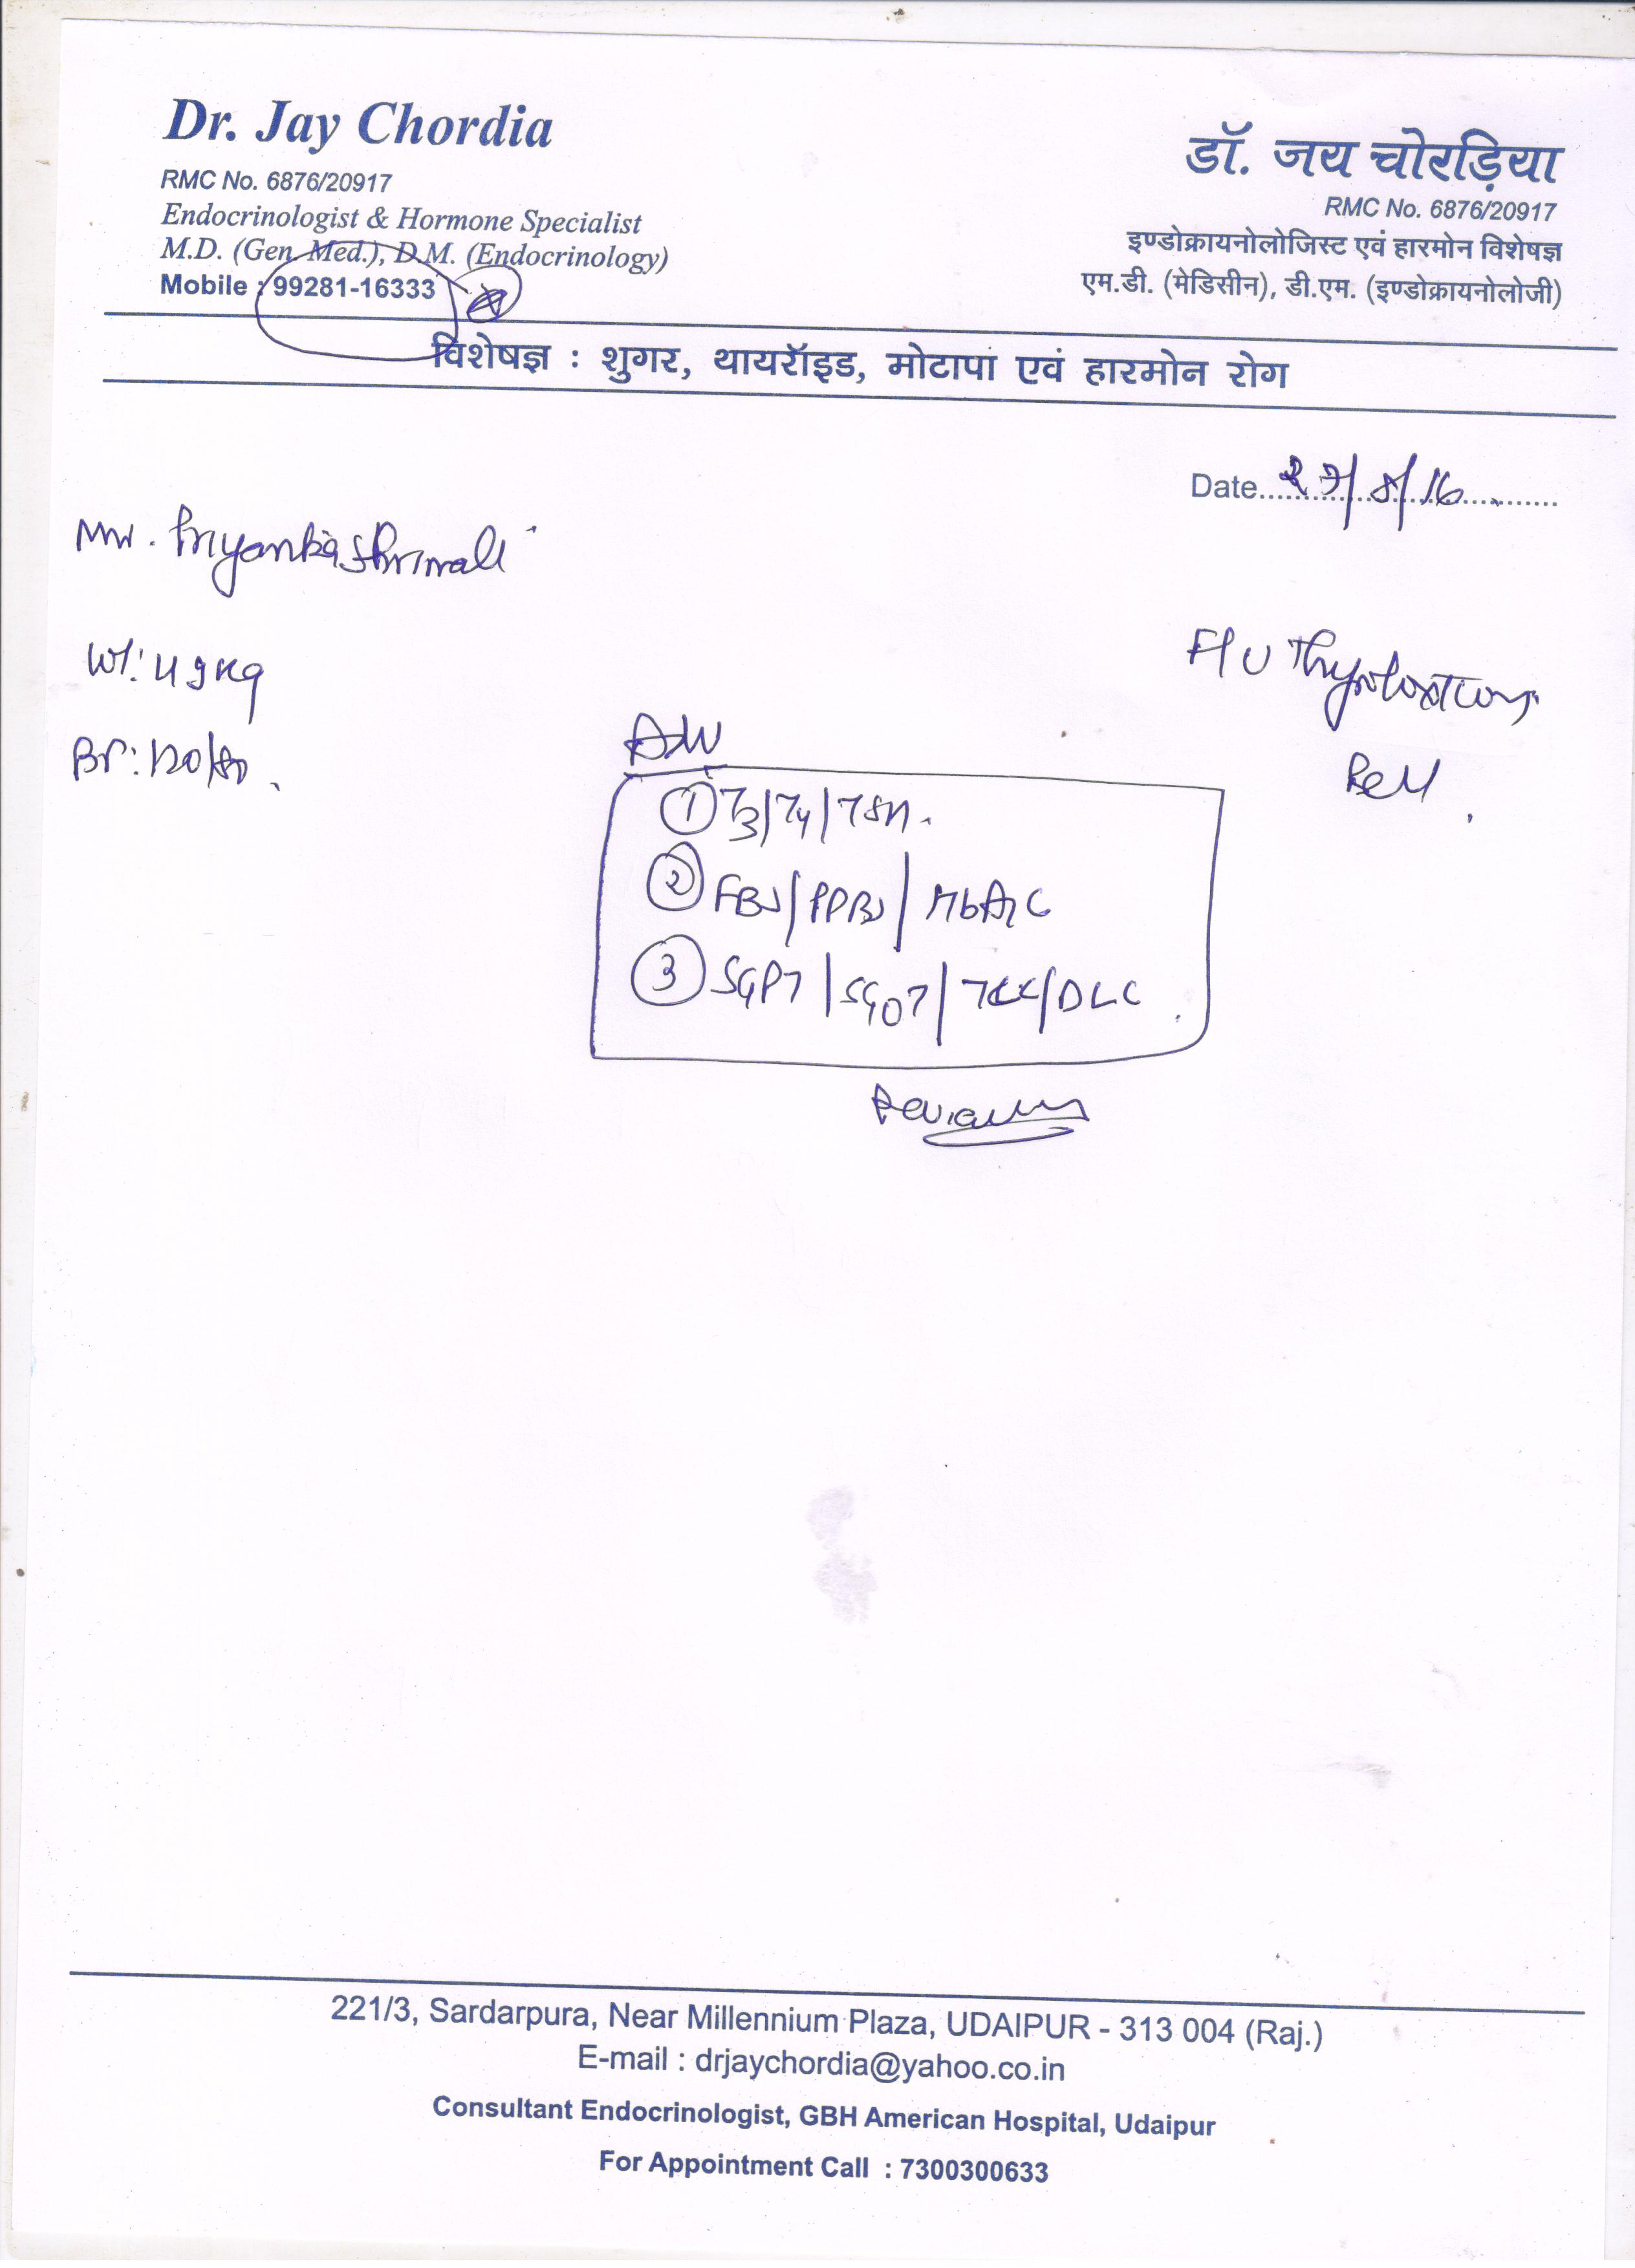 Dr. Jay Chordia
RMC No. 6876/20917
Endocrinologist & Hormone Specialist
M.D. (Gen. Med.), D.M. (Endocrinology)
Mobile : 99281-16333
डॉ. जय चोरड़िया
RMC No. 6876/20917
इण्डोक्रायनोलोजिस्ट एवं हारमोन विशेषज्ञ
एम.डी. (मेडिसीन), डी.एम. (इण्डोक्रायनोलोजी)
विशेषज्ञ : शुगर, थायरॉइड, मोटापा एवं हारमोन रोग
Date 27/8/16
Priyanka Shrimali
Wt: 49 kg
BP: 120/80
F/U Thyrotoxicosis
Adv
① T3/T4/TSH
② FBS/PPBS/HbA1C
③ SGPT/SGOT/TLC/DLC
221/3, Sardarpura, Near Millennium Plaza, UDAIPUR - 313 004 (Raj.)
E-mail : drjaychordia@yahoo.co.in
Consultant Endocrinologist, GBH American Hospital, Udaipur
For Appointment Call : 7300300633